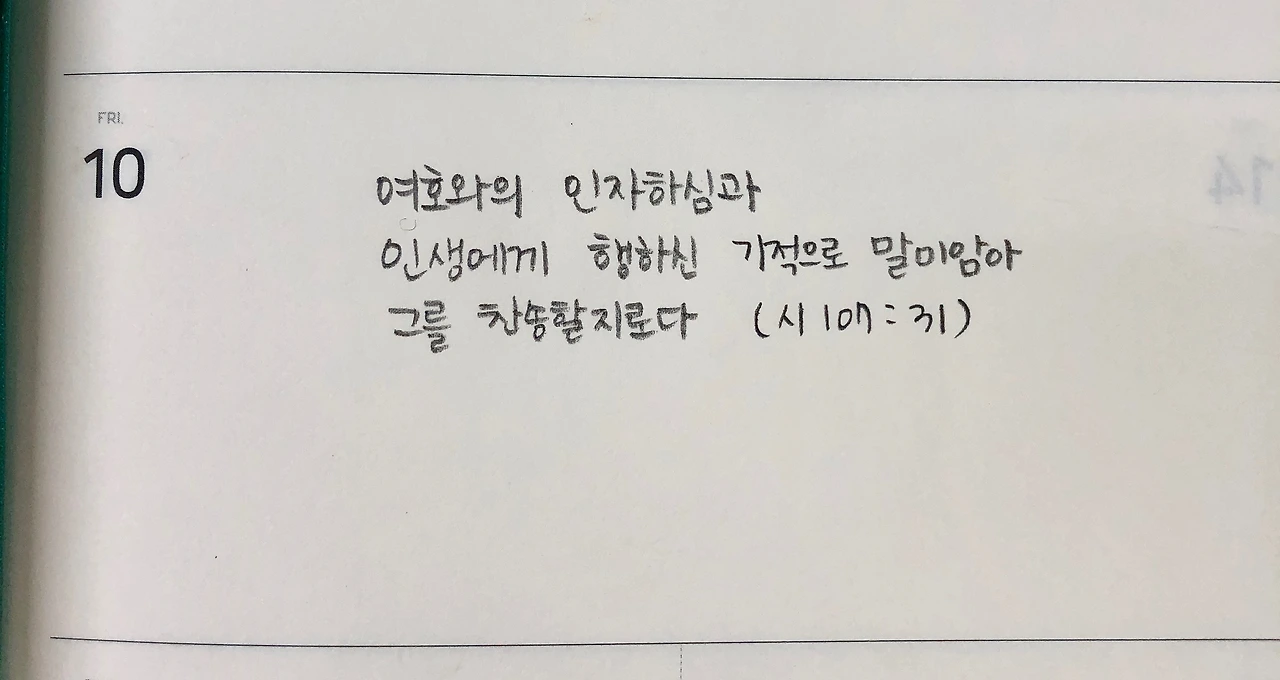 FRI.
10
여호와의 인자하심과
인생에게 행하신 기적으로 말미암아
그를 찬송할지로다 (시 107:31)
14